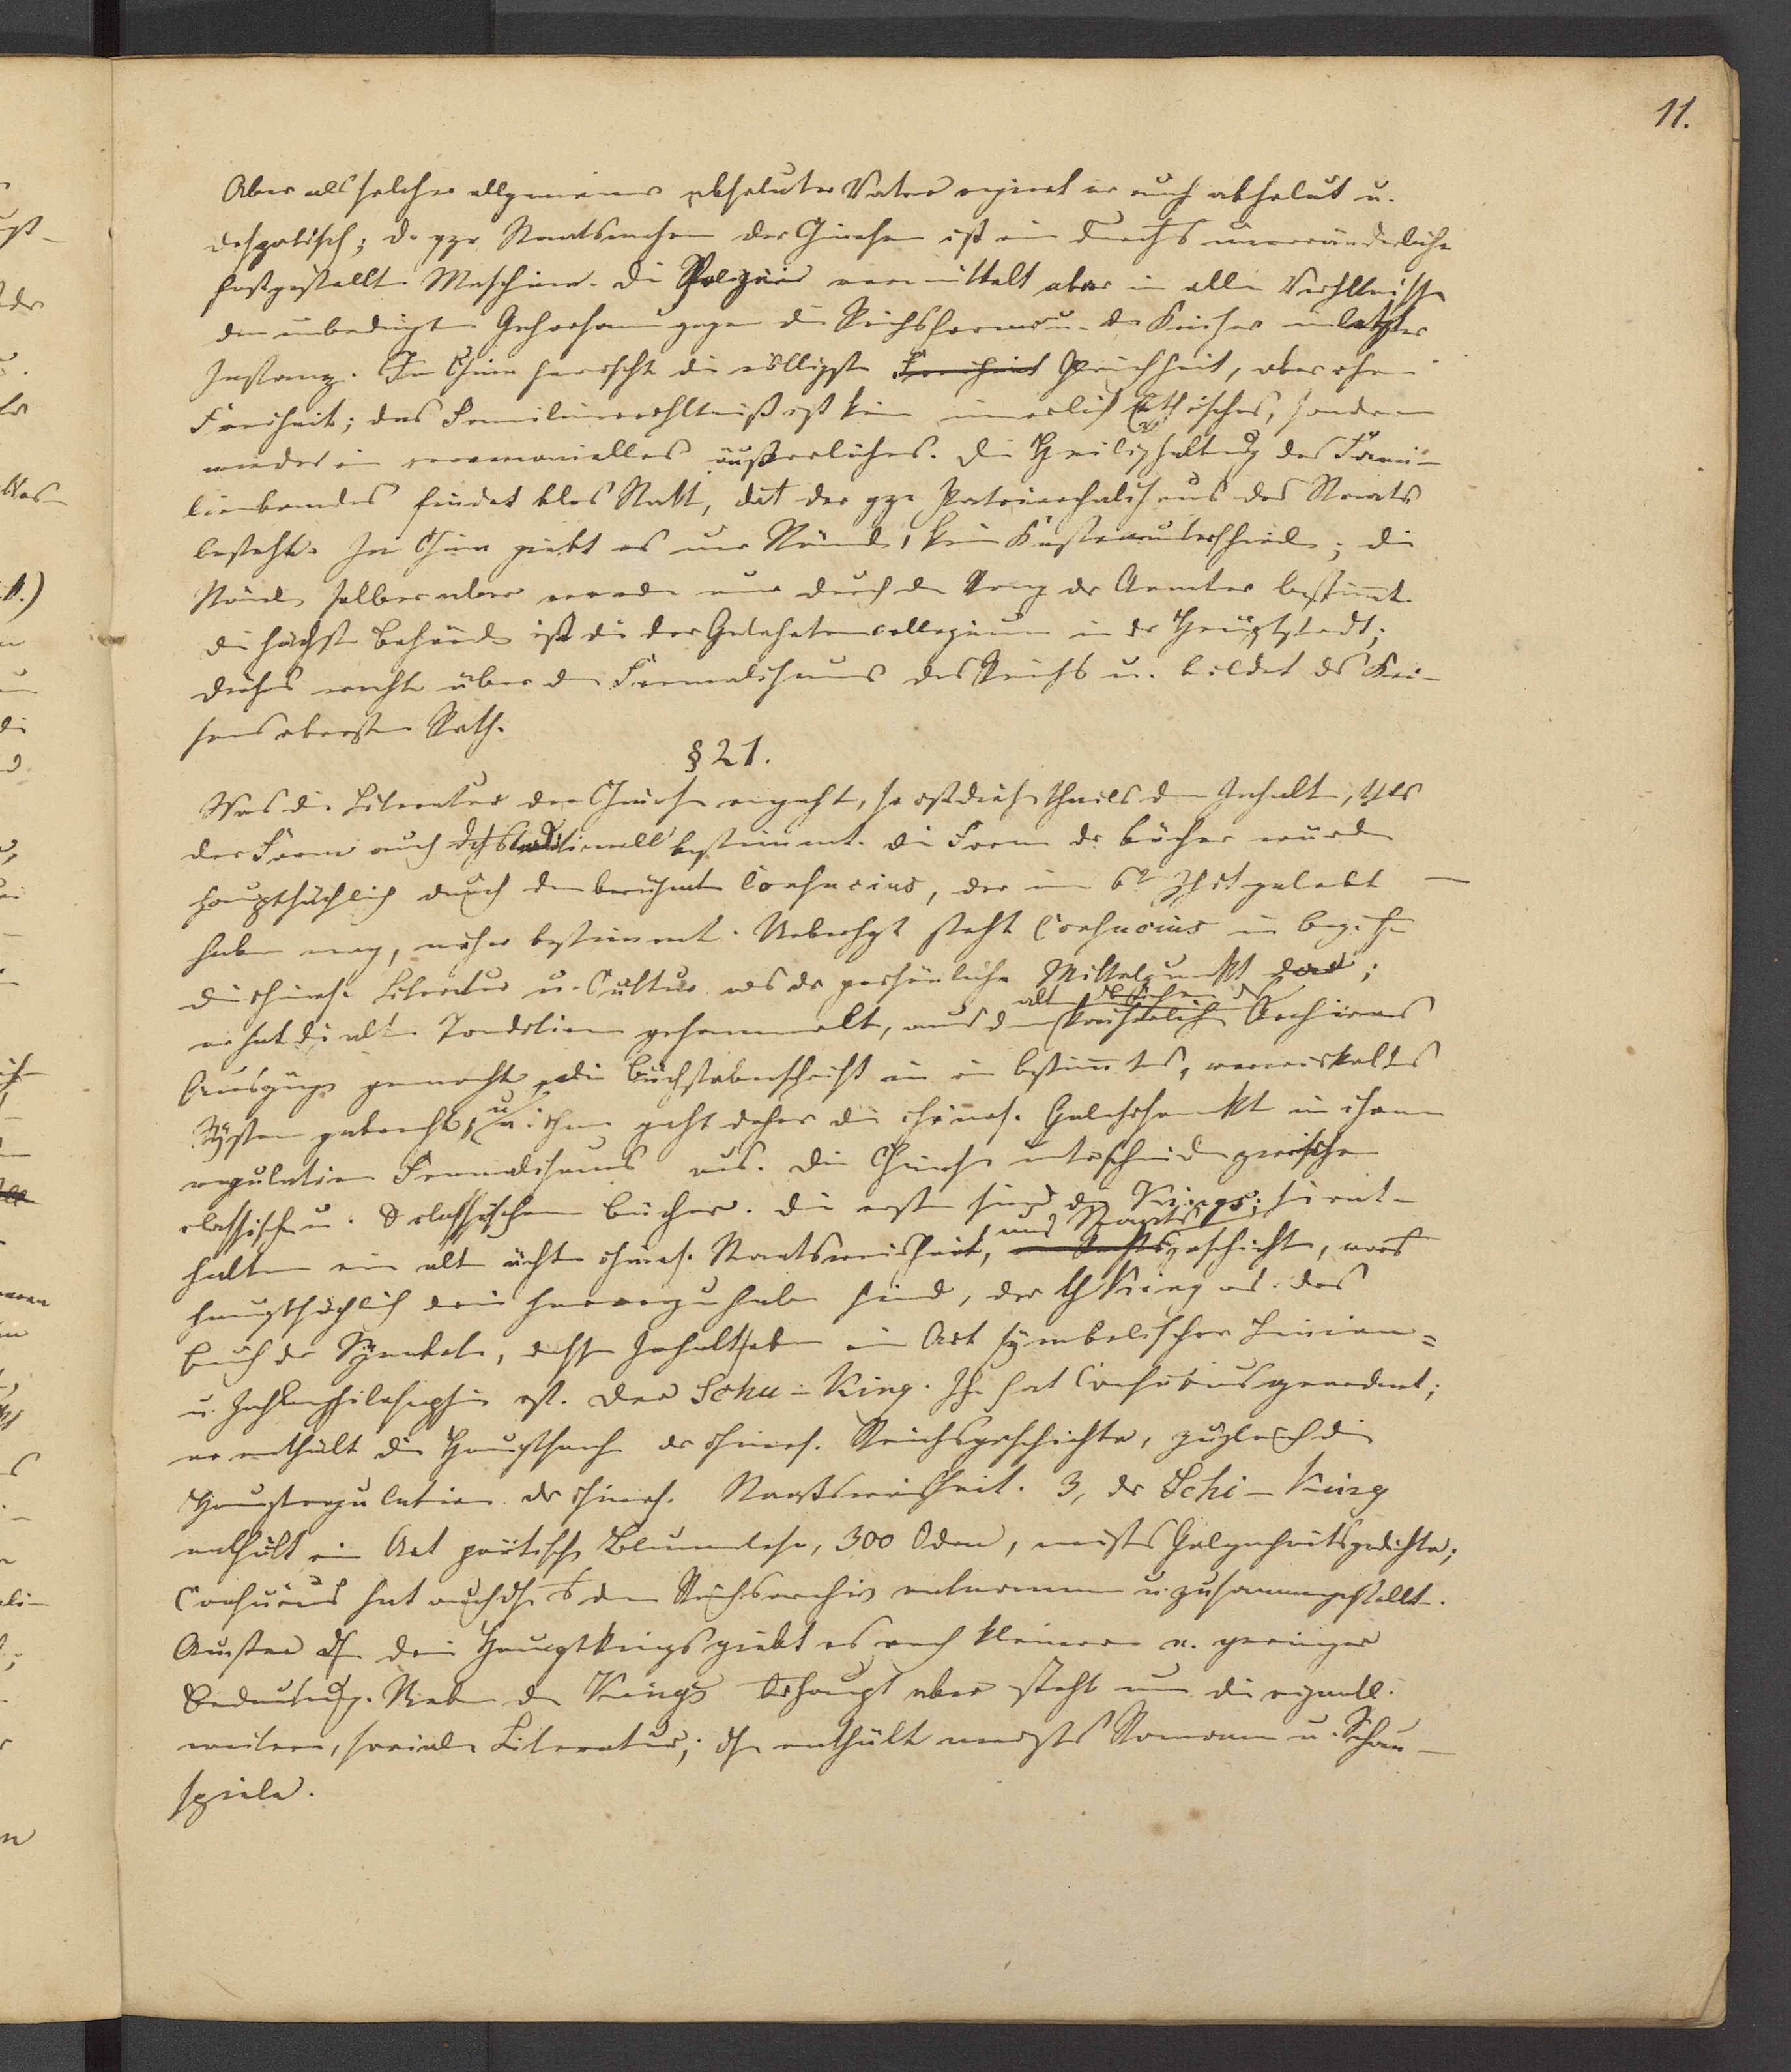 11.
Aber als solcher allgemeiner absoluter Vater regiert er auch absolut u.
despotisch; d. gze Staatswesen der Chinesen ist eine durchs unveränderliche
festgestellte Maschine. Die Polizei vermittelt aber in allen Verhltnissen
den unbedingten Gehorsam gegen die Reichsformen u. den Kaiser in letzter
Instanz. In China herrscht die völligste Gleichheit, aber ohne
Freiheit; das Familienverhltniß ist kein innerlich Ethisches, sondern
wieder ein ceremonielles äußerliches. Die Heilighaltung des Fami-
lienbandes findet blos Statt, dat der gze Patriarchalismus des Staats
besteht. In China giebt es nur Stände, keine Kastenunterschiede; die
Stände selber aber werden nur durch den Rang der Aemter bestimt.
Die höchste Behörde ist die des Gelehrtencollegium in der Hauptstadt;
dieses wacht über den Formalismus des Reichs u. bildet ds Kai-
sers obersten Rath.
§ 21.
Was die Literatur der Chinesen angeht, so ist diese theils dem Inhalte, thls
der Form nach bestimmt. Die Form der Bücher wurde
hauptsächlich durch den berühmten Confucius, der im 6t Jhdt gelebt
haben mag, näher bestimmt. Ueberhpt steht Confucius in Bez. auf
die chines. Literatur u. Cultur als der persönliche Mittelpunkt da;
er hat die alte Tradition gesammelt, aus den Archiven
Auszüge gemacht, die Buchstabenschrift in ein bestimtes, verwickeltes
System gebracht, u. von ihm geht daher die chines. Gelehrsamkt in ihrem
regulativen Formalismus aus. Die Chinesen unterscheiden zwischen
classischen u. classischen Bücher. Die ersten sind die Kings; sie ent-
halten eine alte ächte chines. Staatsweisheit, und Staatsgeschichte, wovon
hauptsächlich drei hervorzuheben sind, der Y King od. das
Buch der Symbole, dessen Inhalt eben eine Art symbolischer Linien=
u. Zahlenphilosophie ist. Der Schu-King. Ihn hat Confucius geordnet;
er enthält die Hauptsache der chines. Reichsgeschichte, zugleich die
Hauptregulation der chines. Staatsweisheit. 3, der Schi-King
enthält eine Art poetische Blumenlese, 300 Oden, meists Gelegenheitsgedichte;
Confucius hat auch ds dem Reichsarchiv entnommen u. zusammengestellt.
Außer dsn drei Hauptkings giebt es noch kleinere v. geringer
Bedeutung. Neben den Kings überhaupt aber steht nun die eigentl.
weitere, sociale Literatur; dse enthält meists Romane u. Schau-
spiele.